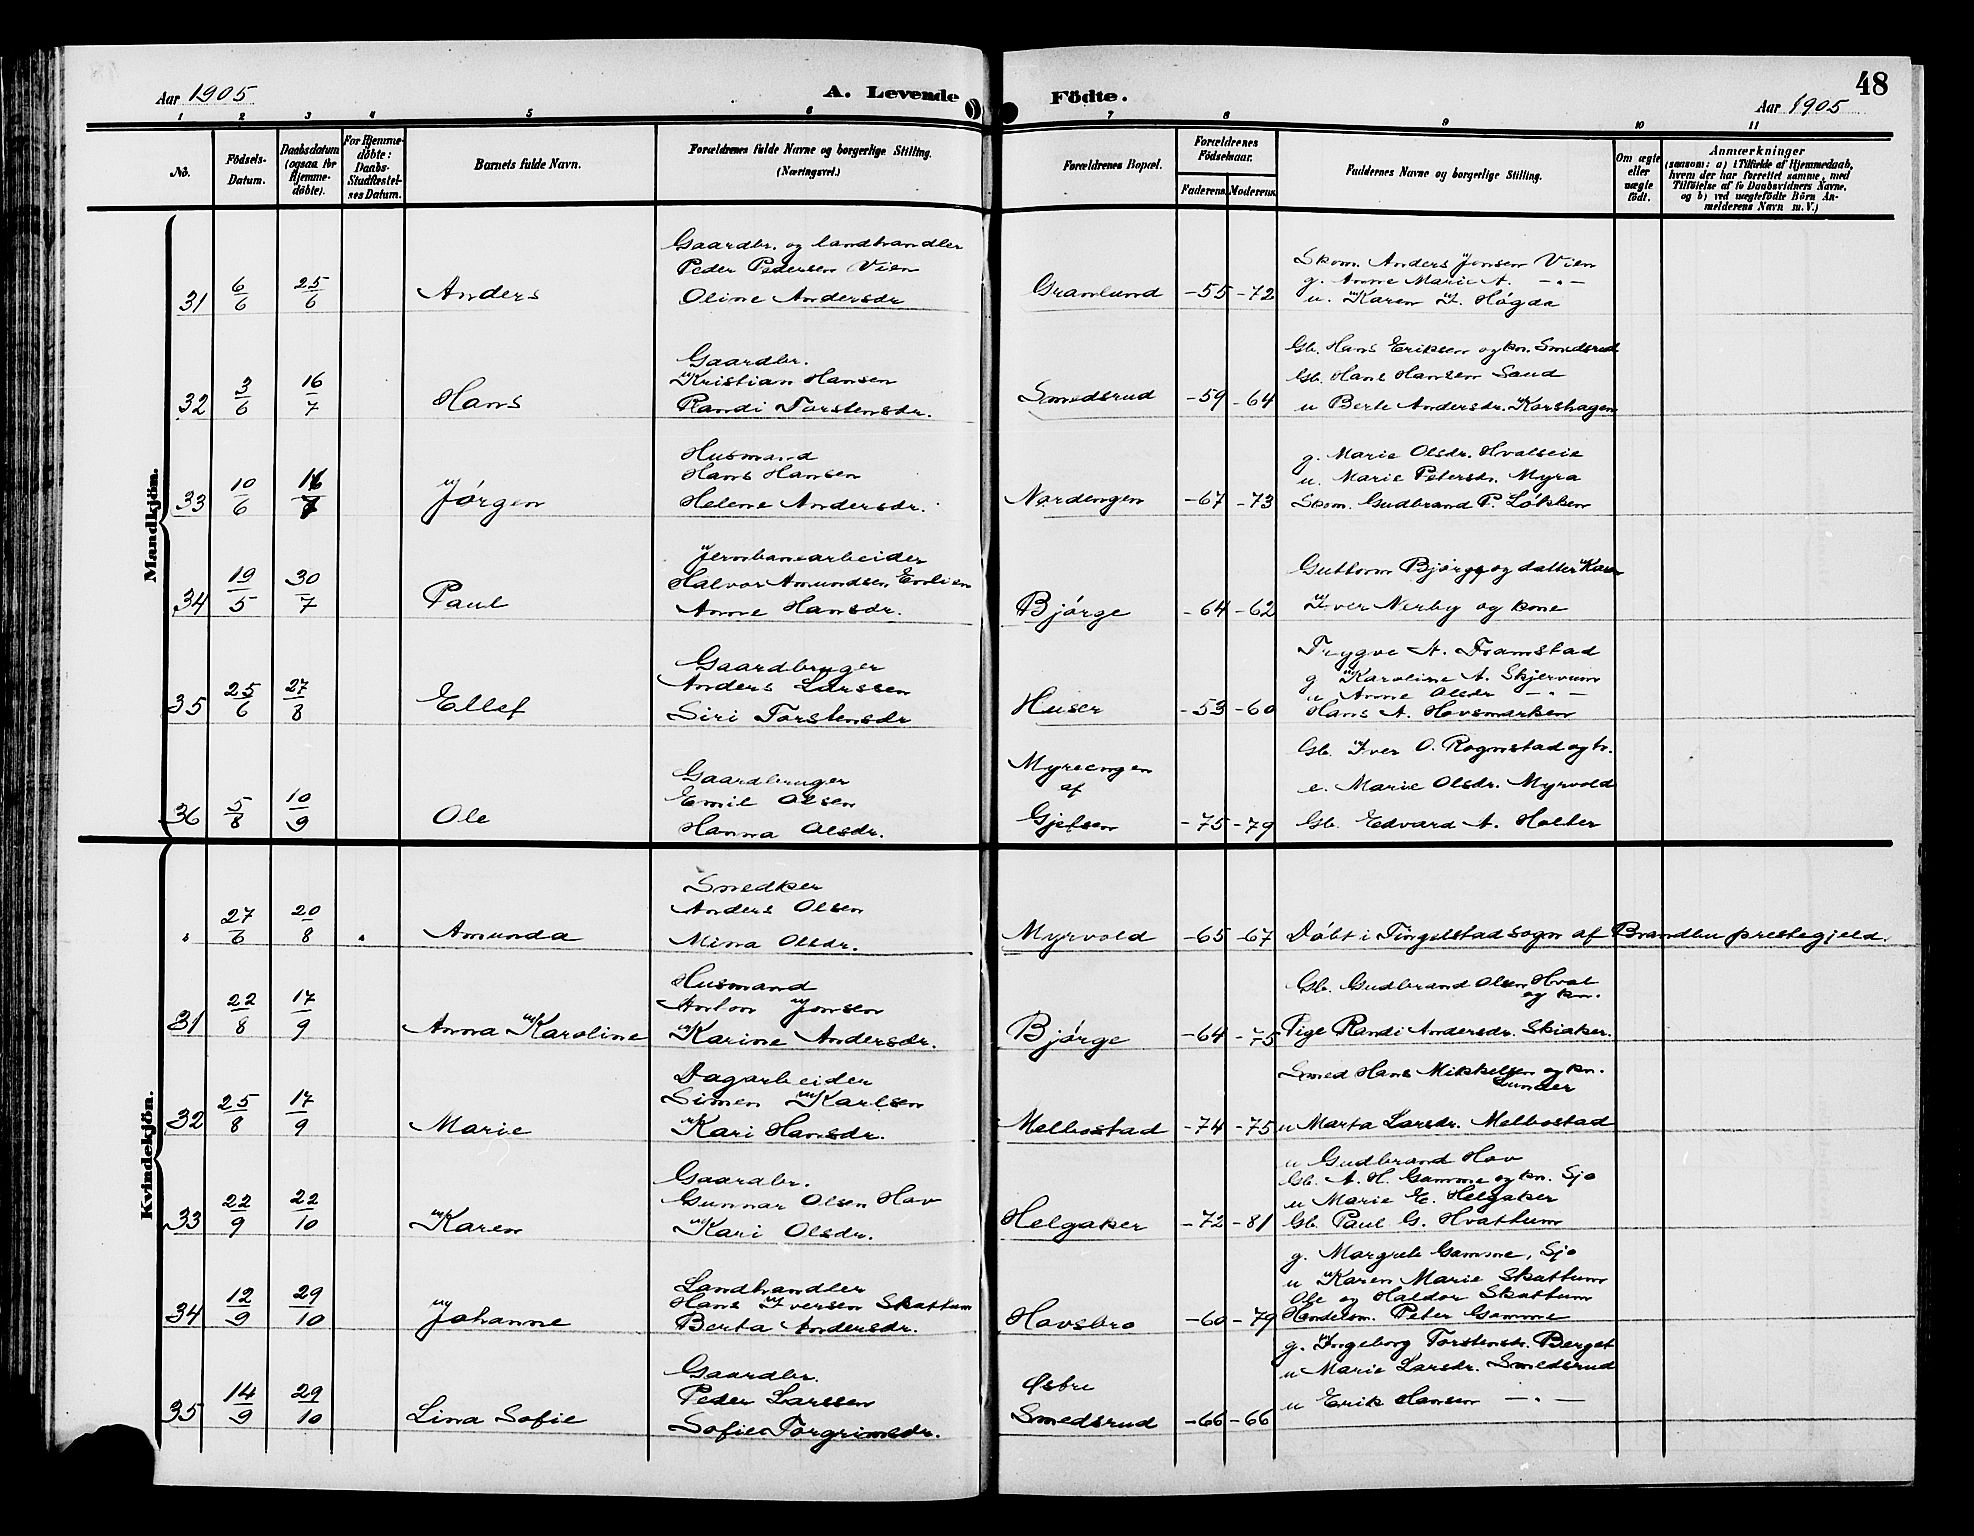 48
Aar 1905
A. Levende
Födte.
Aar 1905
1 2 3 4 5 6 7 8 9 10 11
No.
Födsels-
Datum.
Daabsdatum
(ogsaa for
Hjemme-
döbte).
For Hjemme-
döbte:
Daabs-
Stadfæstel-
ses Datum.
Barnets fulde Navn.
Forældrenes fulde Navne og borgerlige Stilling.
(Næringsvei.)
Forældrenes Bopæl.
Forældrenes
Födselsaar.
Faderens. Moderens.
Faddernes Navne og borgerlige Stilling.
Om ægte
eller
uægte
födt.
Anmærkninger
(saasom: a) i Tilfælde af Hjemmedaab,
hvem der har forrettet samme, med
Tilföielse af to Daabsvidners Navne,
og b) ved uægtefödte Börn An-
melderens Navn m. V.)
Mandkjön.
31 6/6 25/6 Anders
Gaardbr. og landhandler
Peder Pedersen Vien
Oline Andersdr
Granlund -55 -72
Skom. Anders Jonsen Vien
g. Anne Marie A. -"-
u. Karen I. Høgda
32 3/6 16/7 Hans
Gaardbr.
Kristian Hansen
Randi Torstensdr.
Smedsrud -59 -64
Gb. Hans Eriksen og kn. Smedsrud
Gb. Hans Hansen Sand
u Berte Andersdr. Korshagen
33 10/6 16/7 Jørgen
Husmand
Hans Hansen
Helene Andersdr.
Nordengen -67 -73
g. Marie Olsdr. Hvalseie
u. Marie Petersdr. Myra
Skom. Gudbrand P. Løkken
34 19/5 30/7 Paul
Jernbanearbeider
Halvor Amundsen Evelien
Anne Hansdr.
Bjørge -64 -62
Guttorm Bjørge og datter Karen
Iver Nerby og kone
35 25/6 27/8 Ellef
Gaardbruger
Anders Larssen
Siri Torstensdr
Huser -53 -60
Trygve A. Framstad
g Karoline A. Skjervum
u Anne Olsdr -"-
Hans A. Hovsmarken
36 5/8 10/9 Ole
Gaardbruger
Emil Olsen
Hanna Olsdr.
Myrengen
af
Gjefsen -75 -79
Gb. Iver O. Rognstad og h.
e. Marie Olsdr. Myrvold
Gb. Edvard A. Holter
Kvindekjön.
" 27/6 20/8 " Amunda
Snedker
Anders Olsen
Mina Olsdr.
Myrvold -65 -67 Døbt i Tingelstad sogn af Brandbu prestegjeld.
31 22/8 17/9 Anna Karoline
Husmand
Anton Jonsen
Karine Andersdr.
Bjørge -64 -75
Gb. Gudbrand Olsen Hval
og kn.
Pige Randi Andersdr. Skiaker.
32 25/8 17/9 Marie
Dagarbeider
Simen Karlsen
Kari Hansdr.
Melbostad -74 -75
Smed Hans Mikkelsen og kn.
Lunder
u Marta Larsdr. Melbostad
33 22/9 22/10 Karen
Gaardbr.
Gunnar Olsen Hov
Kari Olsdr.
Helgaker -72 -81
u Gudbrand Hov
Gb. A. H. Gamme og kn. Sjo
u Marie E. Helgaker
Gb. Paul G. Hvattum
34 12/9 29/10 Johanne
Landhandler
Hans Iversen Skattum
Berta Andersdr.
Hovsbro -60 -79
g. Margrete Gamme, Sjo
u Karen Marie Skattum
Ole og Haldor Skattum
Handelsm. Peter Gamme
35 14/9 29/10 Lina Sofie
Gaardbr.
Peder Larssen
Sofie Torgrimsdr.
Øsbre
Smedsrud -66 -66
g. Ingeborg Torstensdr. Berget
u Marie Larsdr. Smedsrud
u Erik Hansen -"-